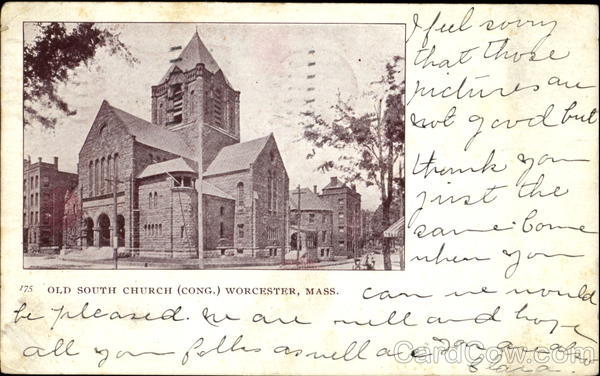 I feel sorry
that those
pictures are
not good but
thank you
just the
same. Come
when you
175 OLD SOUTH CHURCH (CONG.) WORCESTER, MASS.
can we would
be pleased. we are well and hope
all your folks as well as you are also
Clara.
CardCow.com